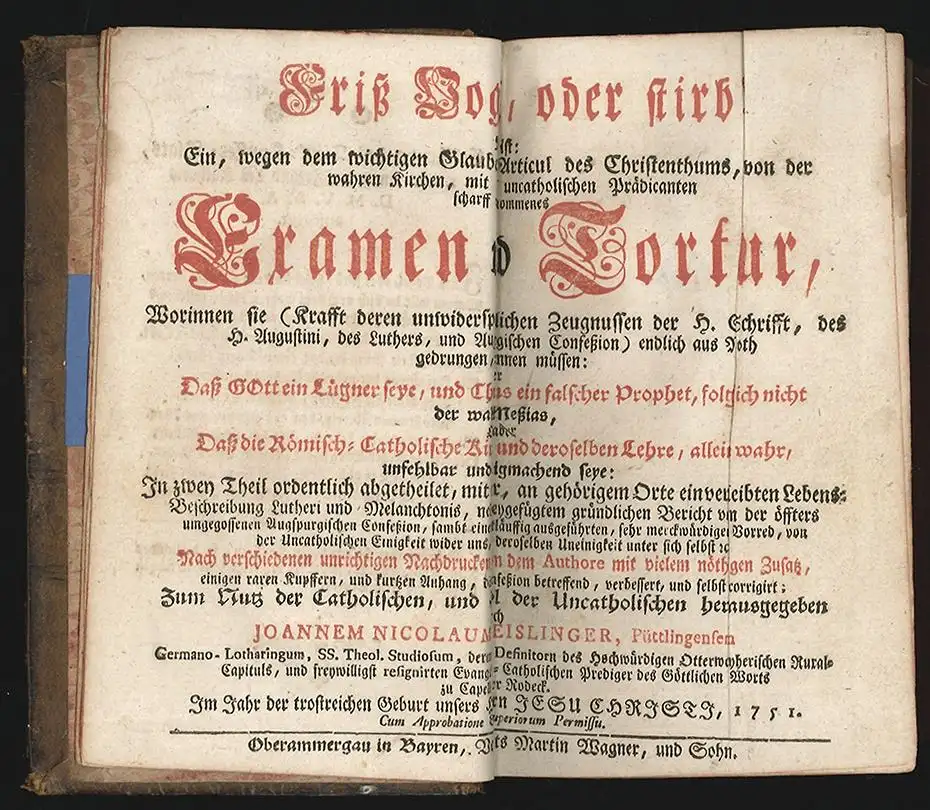 Friß Vog, oder stirb
ist:
Ein, wegen dem wichtigen Glaub Articul des Christenthums, von der
wahren Kirchen, mit uncatholischen Prädicanten
scharff nommenes
Examen d Tortur,
Worinnen sie (Krafft deren unwidersplichen Zeugnussen der H. Schrifft, des
H. Augustini, des Luthers, und Augspurgischen Confeßion) endlich aus Noth
gedrungen nnen müssen:
Daß GOtt ein Lügner seye, und Chus ein falscher Prophet, folglich nicht
der wa Meßias,
oder
Daß die Römisch-Catholische Ki und deroselben Lehre, allein wahr,
unfehlbar und igmachend seye:
In zwey Theil ordentlich abgetheilet, mit r, an gehörigem Orte einverleibten Lebens-
Beschreibung Lutheri und Melanchtonis, n beygefügtem gründlichen Bericht von der öffters
umgegossenen Augspurgischen Confeßion, sambt eine läuffig ausgeführten, sehr merckwürdigen Vorred, von
der Uncatholischen Einigkeit wider uns, deroselben Uneinigkeit unter sich selbst ꝛc
Nach verschiedenen unrichtigen Nachdrucken n dem Authore mit vielem nöthgen Zusatz,
einigen raren Kupffern, und kurtzen Anhang, d nfeßion betreffend, verbessert, und selbst corrigirt:
Zum Nutz der Catholischen, und l der Uncatholischen herausgegeben
ch
JOANNEM NICOLAUM EISLINGER, Püttlingensem
Germano-Lotharingum, SS. Theol. Studiosum, deren Definitorn des Hochwürdigen Otterweyherischen Rural-
Capituls, und freywilligst resignirten Evang-Catholischen Prediger des Göttlichen Worts
zu Capell r Rodeck.
Im Jahr der trostreichen Geburt unsers rn JESU CHRISTI, 1751.
Cum Approbatione Superiorum Permissu.
Oberammergau in Bayren, ts Martin Wagner, und Sohn.